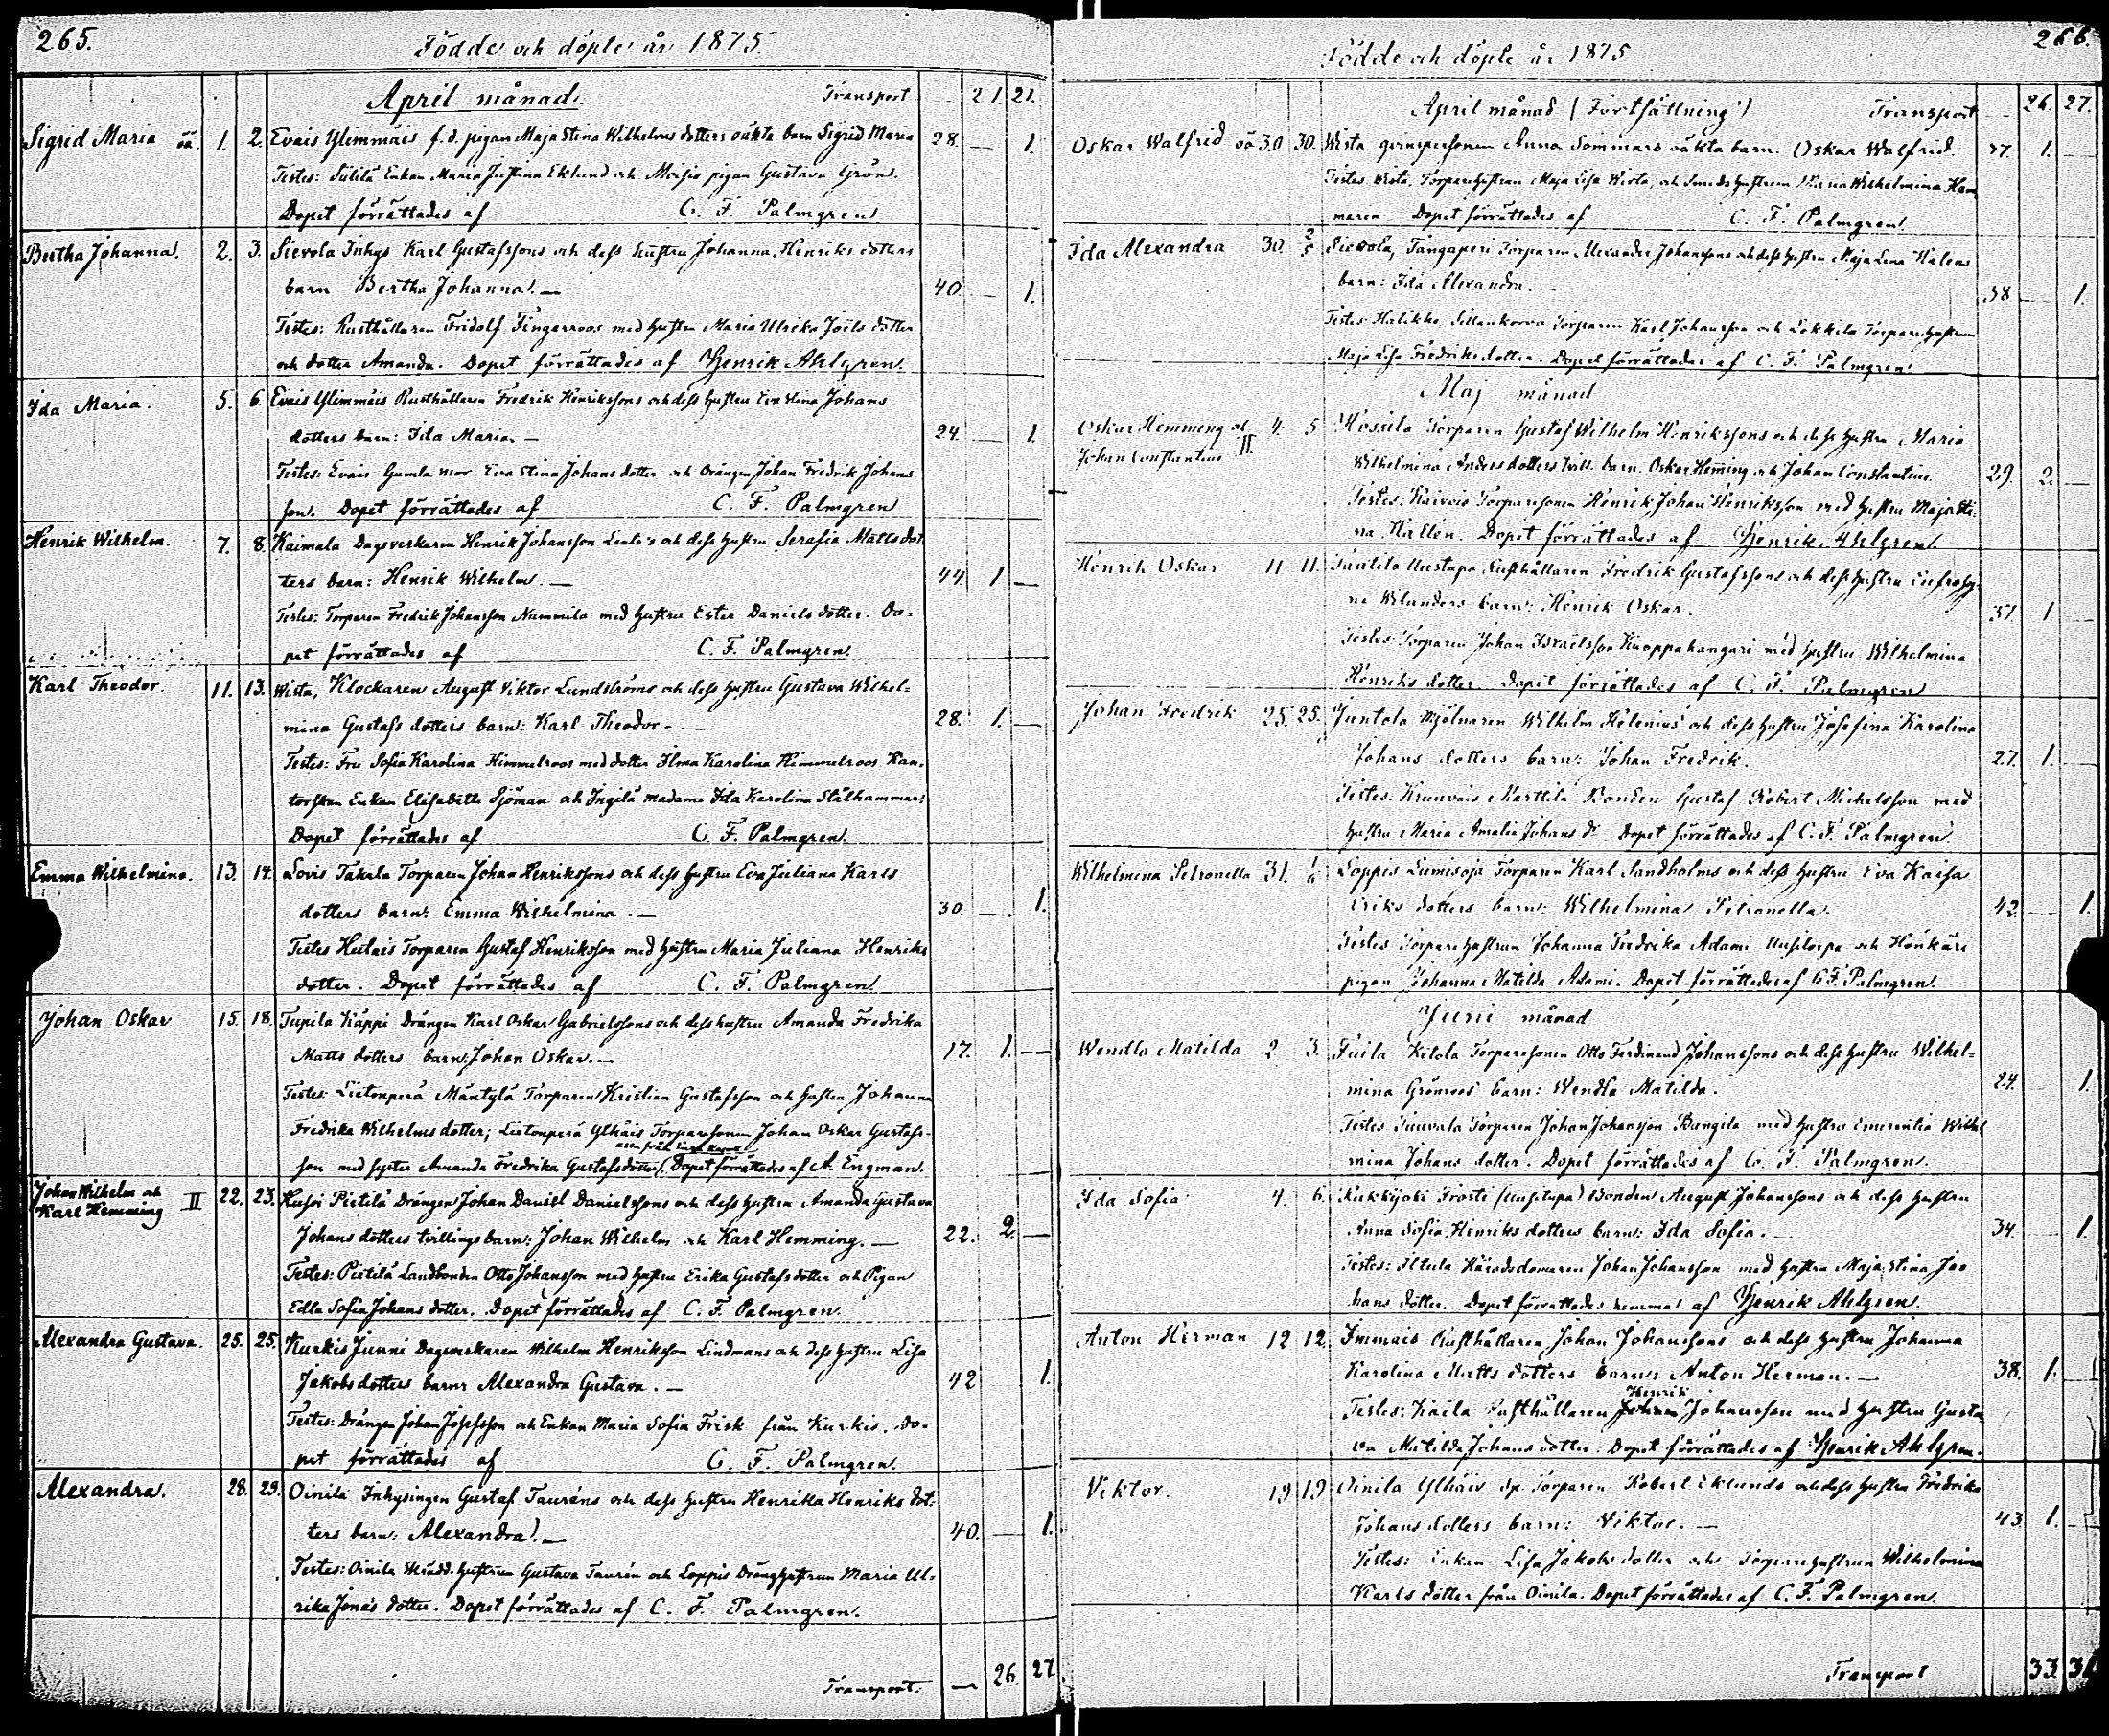 265.
Födde och döpte år 1875.
April månad. Transport 21 21.
Sigrid Maria oä. 1. 2. Evais Ylimmäis f.d. pigan Maja Stina Wilhelms dotters oäkta barn Sigrid Maria 28. — 1.
Testes: Enkan Maria Justina Eklund och pigan Gustava Grön.
Dopet förrättades af C. F. Palmgren
Bertha Johanna. 2. 3. Sievola Inhys Karl Gustafssons och dess hustru Johanna Henriks dotters
barn Bertha Johanna. — 40. — 1.
Testes: Rusthållaren Fridolf Fingerroos med hustru Maria Ulrika Joëls dotter
och dotter Amanda. Dopet förrättades af Henrik Ahlgren.
Ida Maria. 5. 6. Evais Ylimmäis Rusthållaren Fredrik Henrikssons och dess hustru Eva Stina Johans
dotters barn: Ida Maria. — 24. — 1.
Testes: Evais Gamla mor Eva Stina Johans dotter och drängen Johan Fredrik Johans
son. Dopet förrättades af C. F. Palmgren
Henrik Wilhelm. 7. 8. Kaimala Dagsverkaren Henrik Johansson och dess hustru Serafia Matts dot
ters barn: Henrik Wilhelm. — 44 1 —
Testes: Torparen Fredrik Johansson Nummila med hustru Ester Daniels dotter. Do-
pet förrättades af C. F. Palmgren
Karl Theodor. 11. 13. Wista, Klockaren August Viktor Lundströms och dess hustru Gustava Wilhel-
mina Gustafs dotters barn: Karl Theodor. — 28. 1. —
Testes: Fru Sofia Karolina Himmelroos med dotter Ilma Karolina Himmelroos Kan-
torskan Enkan Elisabeth Sjöman och Ingilä madame Ida Karolina Stålhammars
Dopet förrättades af C. F. Palmgren.
Emma Wilhelmina. 13. 14. Lovis Takala Torparen Johan Henrikssons och dess hustru Eva Juliana Karls
dotters barn: Emma Wilhelmina. — 30. — 1.
Testes Torparen Gustaf Henriksson med hustru Maria Juliana Henriks
dotter. Dopet förrättades af C. F. Palmgren
Johan Oskar 15. 18. Tupila Käppi Drängen Karl Oskar Gabrielssons och dess hustru Amanda Fredrika
Matts dotters barn: Johan Oskar. — 17. 1. —
Testes: Lietonperä Mäntylä Torparen Kristian Gustafsson och hustru Johanna
Fredrika Wilhelms dotter; Lietonperä Ylhäis Torparesonen Johan Oskar Gustafs-
son med syster Amanda Fredrika Gustafsdotter. Dopet förrättades af A. Engman.
Johan Wilhelm och
Karl Hemming II 22. 23. Pietilä Drängen Johan Daniel Danielssons och dess hustru Amanda Gustava
Johans dotters tvillingsbarn: Johan Wilhelm och Karl Hemming. — 22. 2. —
Testes: Pietilä Landbonden Otto Johansson med hustru Erika Gustafs dotter och Pigan
Edla Sofia Johans dotter. Dopet förrättades af C. F. Palmgren.
Alexandra Gustava. 25. 25. Kurkis Junni Dagsverkaren Wilhelm Henriksson Lindmans och dess hustru Lisa
Jakobs dotters barn Alexandra Gustava. — 42 1.
Testes: Drängen Johan Josefsson och Enkan Maria Sofia Frisk från Kurkis. Do-
pet förrättades af C. F. Palmgren.
Alexandra. 28. 29. Oinila Inhysingen Gustaf Tauréns och dess hustru Henrika Henriks dot-
ters barn: Alexandra. — 40. — 1.
Testes: Oinila hustrun Gustava Taurén och Loppis Dränghustrun Maria Ul-
rika Jonas dotter. Dopet förrättades af C. F. Palmgren.
Transport. — 26 27
266.
Födde och döpte år 1875
April månad (Fortsättning) Transport — 26. 27.
Oskar Walfrid oä 30 30. Wista qvinspersonen Anna Sommars oäkta barn. Oskar Walfrid. 37. 1. —
Testes Wista, Torparehustrun Maja Lisa Wirta, och Smedshustrun Maria Wilhelmina Ham
maren Dopet förrättades af C. F. Palmgren
Ida Alexandra 30. 2/5 Sievola, Torparen Alexander Johanssons och dess hustru Maja Lena Haléns
barn: Ida Alexandra. 38 1.
Testes Halikko Torparen Karl Johansson och Torparehustrun
Maja Lisa Fredriksdotter. Dopet förrättades af C. F. Palmgren
Maj månad
Oskar Hemming och
Johan Constantin II 4. 5 Torparen Gustaf Wilhelm Henrikssons och dess hustru Maria
Wilhelmina Anders dotters tvill. barn. Oskar Heming och Johan Constantin. 29. 2. —
Testes: Torparesonen Henrik Johan Henriksson med hustru Maja Sti-
na Hallén. Dopet förrättades af Henrik Ahlgren.
Henrik Oskar 11 11. Rusthållaren Fredrik Gustafssons och dess hustru Eufrosy-
na Wilanders barn: Henrik Oskar. 37. 1
Testes: Torparen Johan Israelsson Knaappakangari med hustru Wilhelmina
Henriks dotter. Dopet förrättades af C. F. Palmgren
Johan Fredrik 25. 25. Juntola Mjölnaren Wilhelm Helenius och dess hustru Josefina Karolina
Johans dotters barn: Johan Fredrik. 27. 1. —
Testes: Marttila Bonden Gustaf Robert Michelsson med
hustru Maria Amalia Johans dr Dopet förrättades af C. F. Palmgren
Wilhelmina Petronella 31. 1/6 Loppis Lumisoja Torparen Karl Sandholms och dess hustru Eva Kaisa
Eriks dotters barn: Wilhelmina Petronella. 42 — 1.
Testes Torparehustrun Johanna Fredrika Adami och
pigan Johanna Matilda Adami. Dopet förrättades af C. F. Palmgren
Juni månad
Wendla Matilda 2 3. Ketola Torparesonen Otto Ferdinand Johanssons och dess hustru Wilhel-
mina Grönroos barn: Wendla Matilda. 24. 1.
Testes Torparen Johan Johansson med hustru Emerentia Wilhel
mina Johans dotter. Dopet förrättades af C. F. Palmgren.
Ida Sofia 4. 6. Kukkijoki Frosti Bonden August Johanssons och dess hustru
Anna Sofia Henriks dotters barn: Ida Sofia. — 34. 1.
Testes: Iltula Häradsdomaren Johan Johansson med hustru Maja Stina Jo
hans dotter. Dopet förrättades hemma af Henrik Ahlgren.
Anton Herman 12 12. Immais Rusthållaren Johan Johanssons och dess hustru Johanna
Karolina Matts dotters barn: Anton Herman. — 38. 1. —
Henrik
Testes: Kaila Rusthållaren Johan Johansson med hustru Gusta
va Matilda Johans dotter. Dopet förrättades af Henrik Ahlgren.
Viktor. 19 19 Oinila Ylhäis Torparen Robert Eklunds och dess hustru Fredrika
Johans dotters barn: Viktor. — 43 1. —
Testes: Enkan Lisa Jakobs dotter och Torparehustrun Wilhelmina
Karls dotter från Oinila. Dopet förrättades af C. F. Palmgren
Transport 33. 31